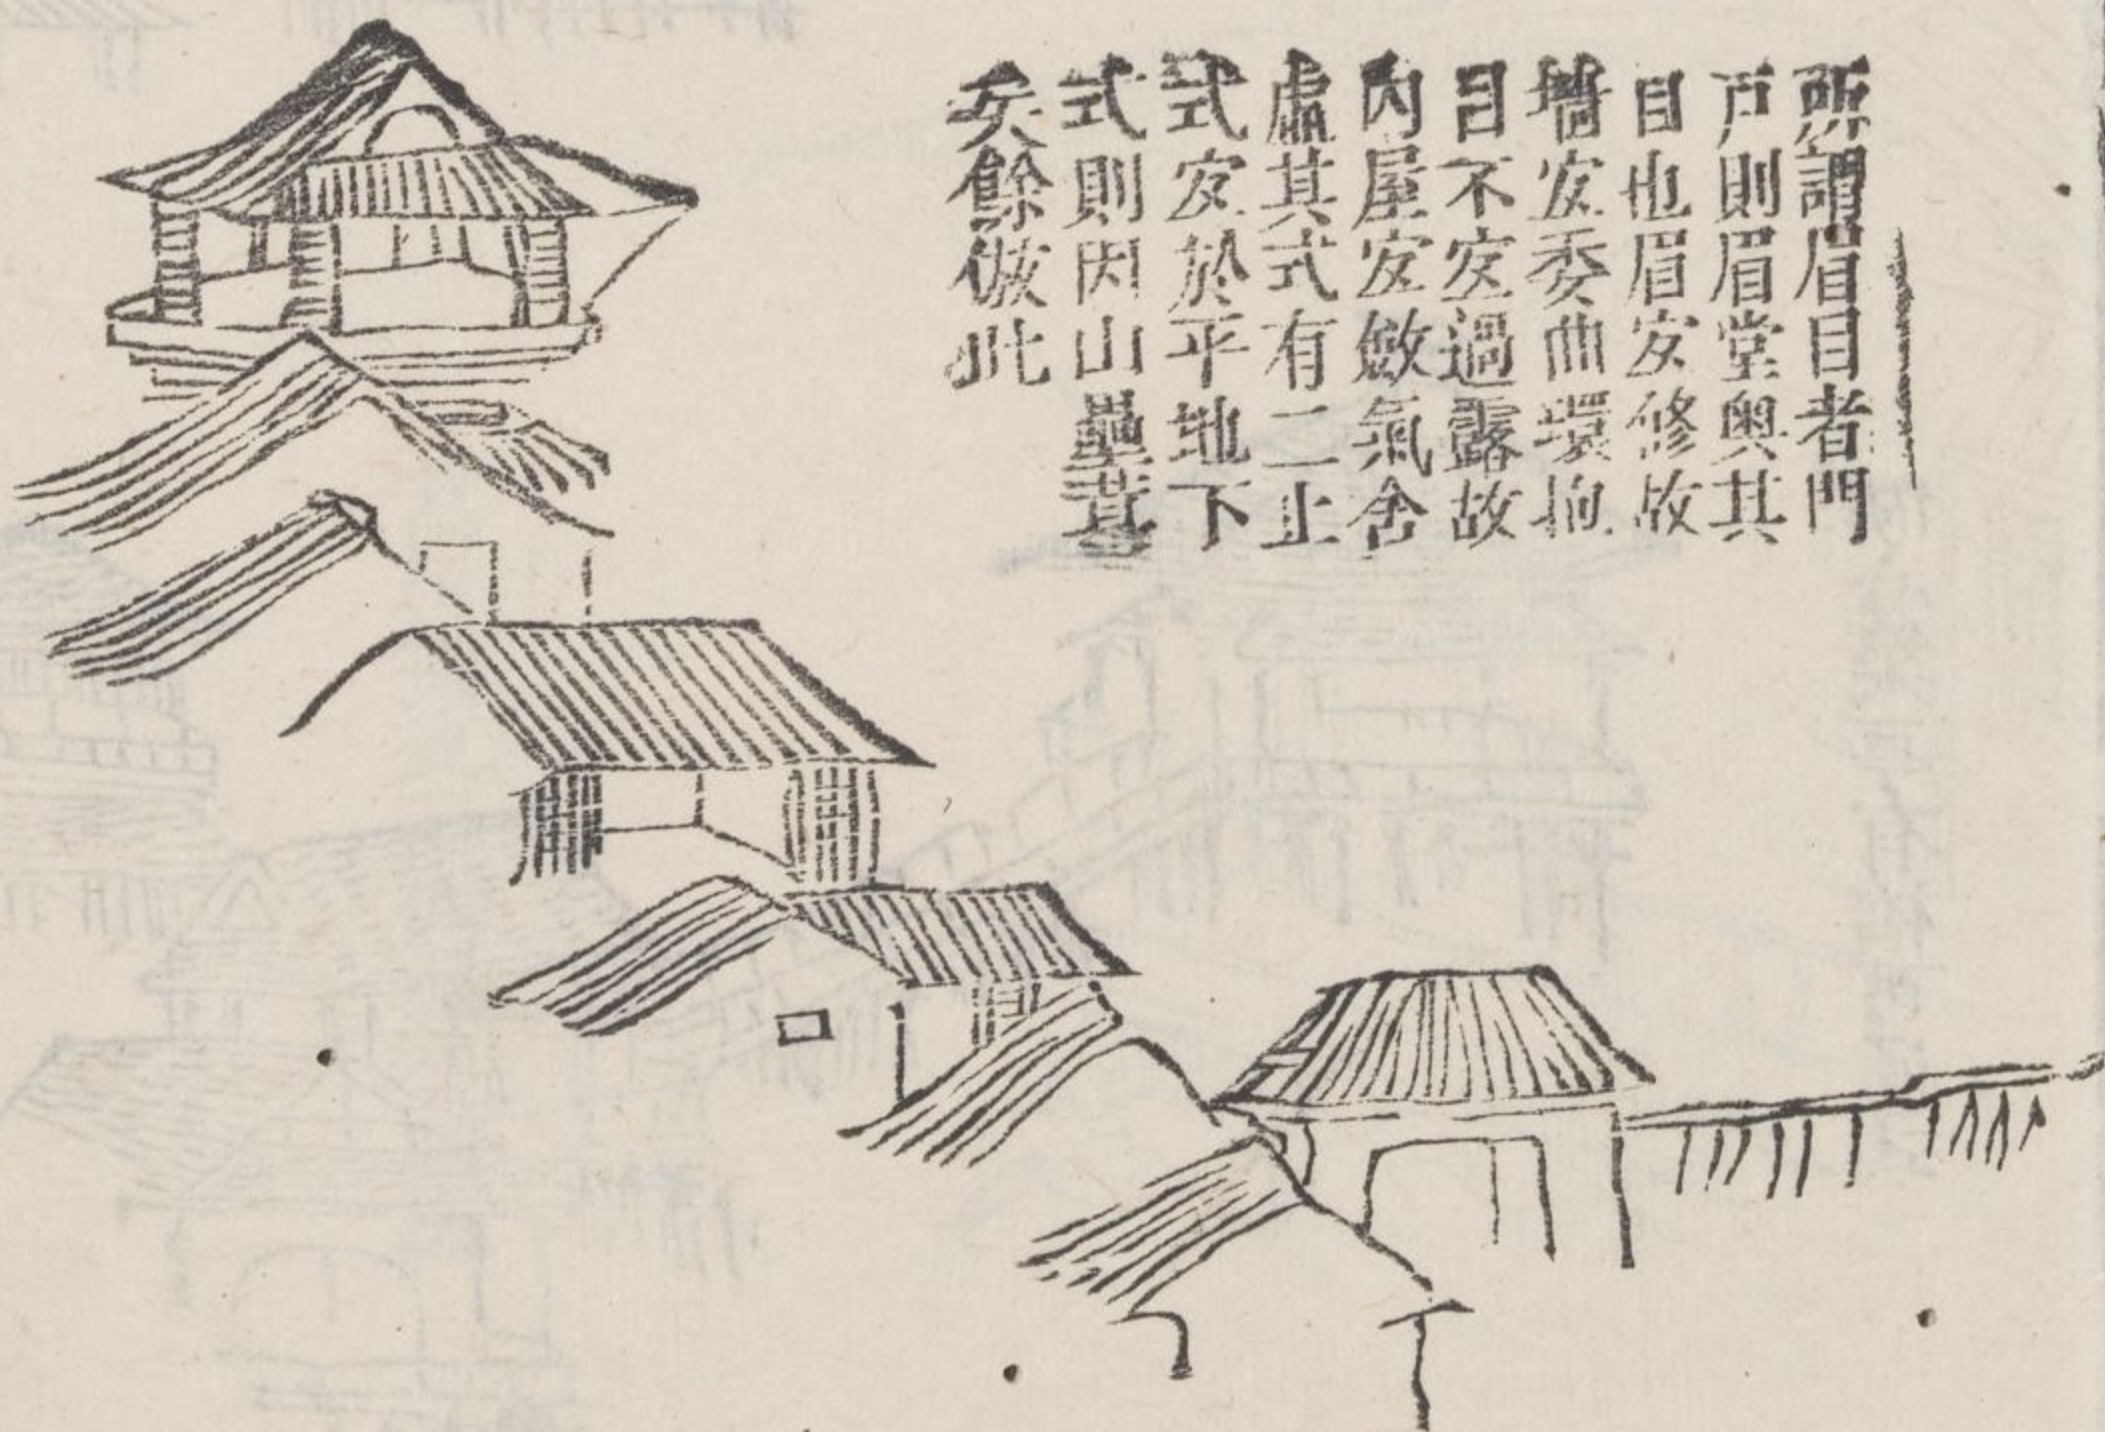 所謂眉目者門
戸則眉堂奧其
目也眉宜修故
墻宜委曲環抱
目不宜過露故
内屋宜斂氣舍
虛其式有二上
式宜於平地下
式則因山壘葺
矣餘倣此